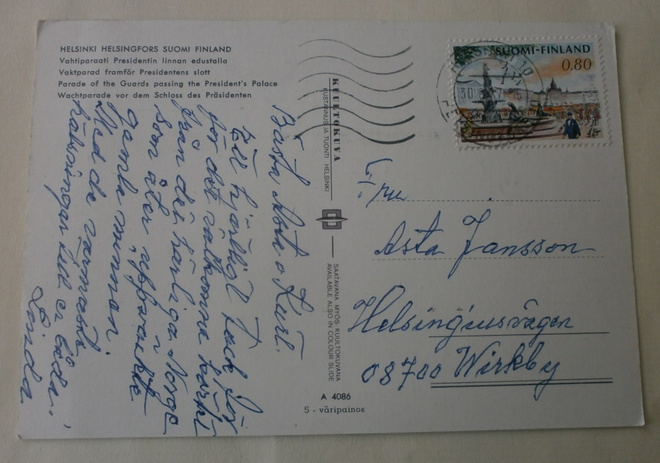 HELSINKI HELSINGFORS SUOMI FINLAND
Vahtiparaati Presidentin linnan edustalla
Vaktparad framför Presidentens slott
Parade of the Guards passing the President's Palace
Wachtparade vor dem Schloss des Präsidenten
Bästa Asta o Kurt.
Ett hjärtligt tack för
för det välkomna kortet
från det härliga Norge
som åter uppväckte
gamla minnen.
Med de varmaste
hälsningar till er båda.
Linda
KUVATUKKU
KUSTANNUS JA TUONTI HELSINKI
SAATAVANA MYÖS KUULTOKUVANA
AVAILABLE ALSO IN COLOUR SLIDE
A 4086
5 - väripainos
SUOMI-FINLAND
0,80
Fru
Asta Jansson
Helsingiusvägen
08700 Wirkby